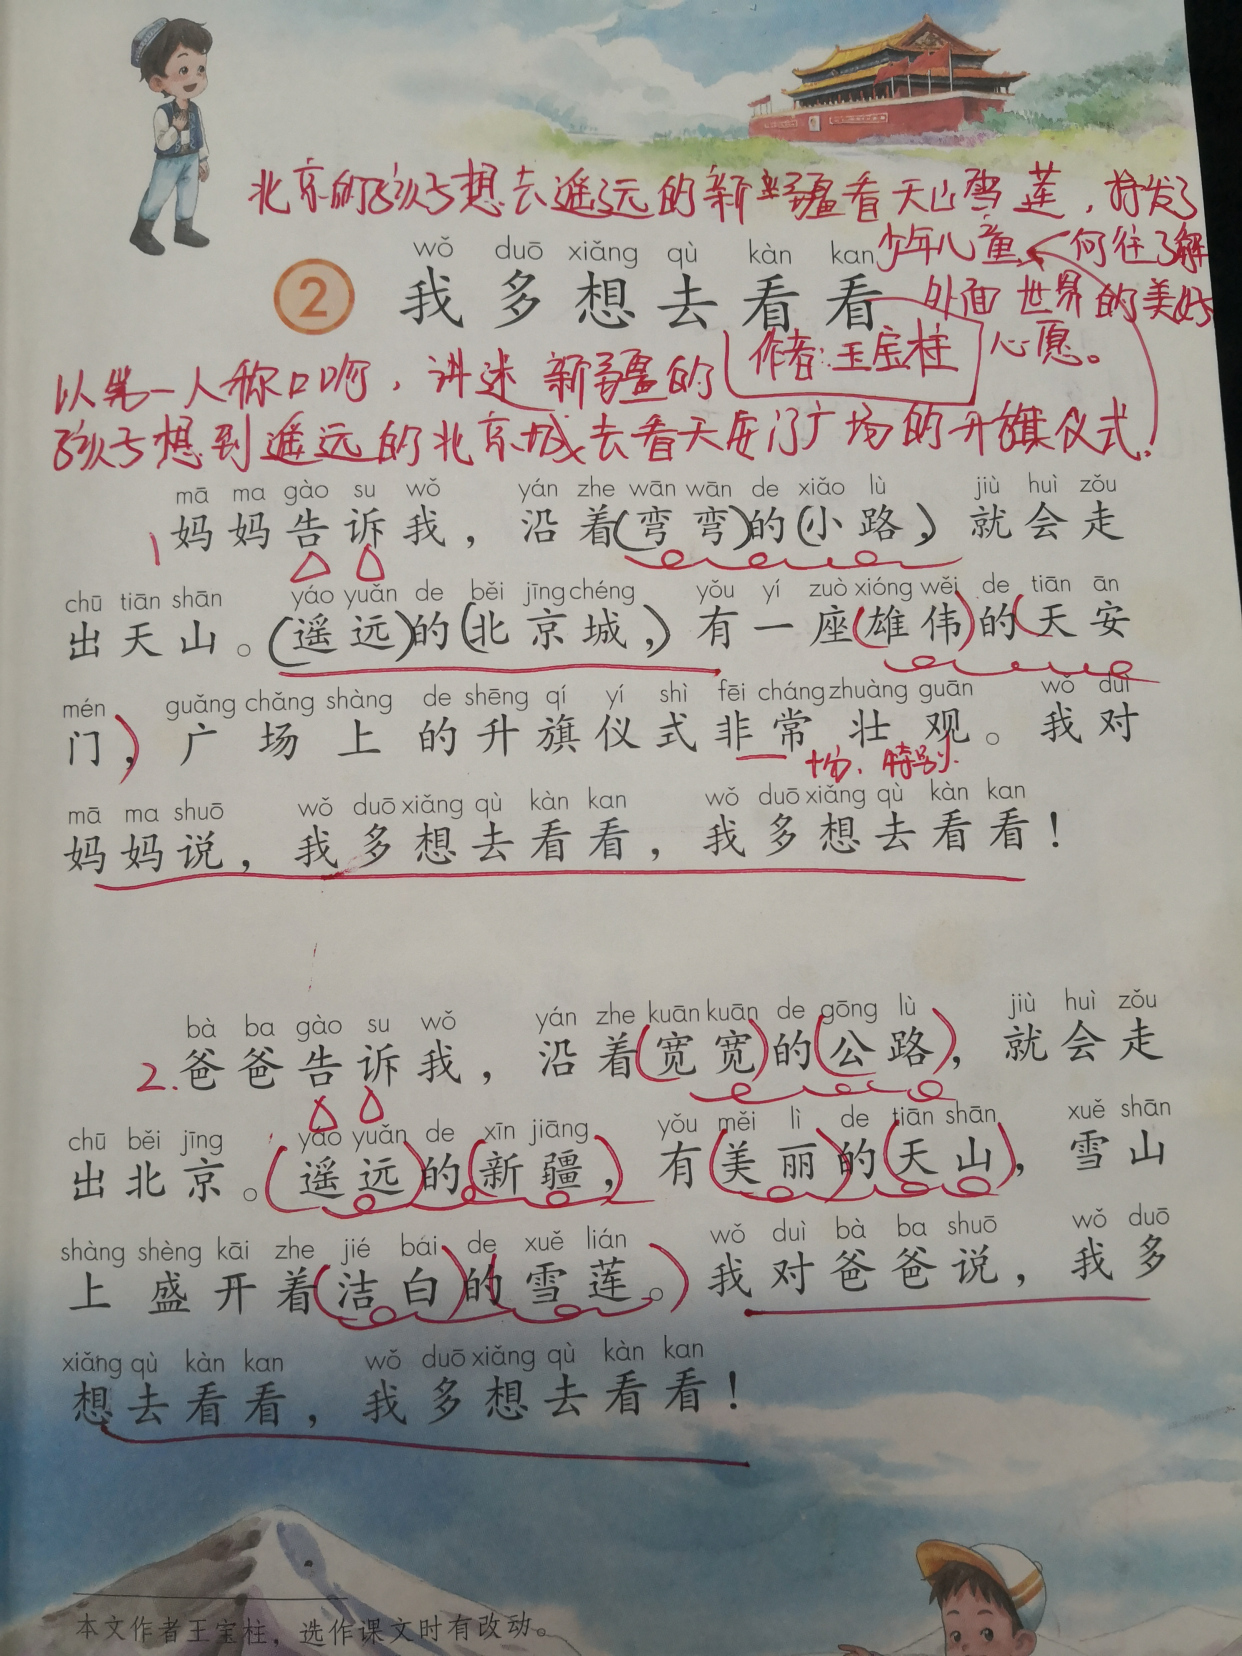 北京的孩子想去遥远的新疆看天山雪莲，抒发了
少年儿童 何往了解
外面世界的美好
心愿。
wǒ duō xiǎng qù kàn kan
2 我多想去看看
作者：王宝柱
以第一人称口吻，讲述新疆的
孩子想到遥远的北京城去看天安门广场的升旗仪式！
mā ma gào su wǒ yán zhe wān wān de xiǎo lù jiù huì zǒu
1 妈妈告诉我，沿着(弯弯)的(小路，)就会走
chū tiān shān yáo yuǎn de běi jīng chéng yǒu yí zuò xióng wěi de tiān ān
出天山。(遥远)的(北京城，)有一座(雄伟)的(天安
mén guǎng chǎng shàng de shēng qí yí shì fēi cháng zhuàng guān wǒ duì
门，)广场上的升旗仪式非常壮观。我对
十分、特别
mā ma shuō wǒ duō xiǎng qù kàn kan wǒ duō xiǎng qù kàn kan
妈妈说，我多想去看看，我多想去看看！
bà ba gào su wǒ yán zhe kuān kuān de gōng lù jiù huì zǒu
2.爸爸告诉我，沿着(宽宽)的(公路)，就会走
chū běi jīng yáo yuǎn de xīn jiāng yǒu měi lì de tiān shān xuě shān
出北京。(遥远)的(新疆，)有(美丽)的(天山)，雪山
shàng shèng kāi zhe jié bái de xuě lián wǒ duì bà ba shuō wǒ duō
上盛开着(洁白)的(雪莲。)我对爸爸说，我多
xiǎng qù kàn kan wǒ duō xiǎng qù kàn kan
想去看看，我多想去看看！
本文作者王宝柱，选作课文时有改动。